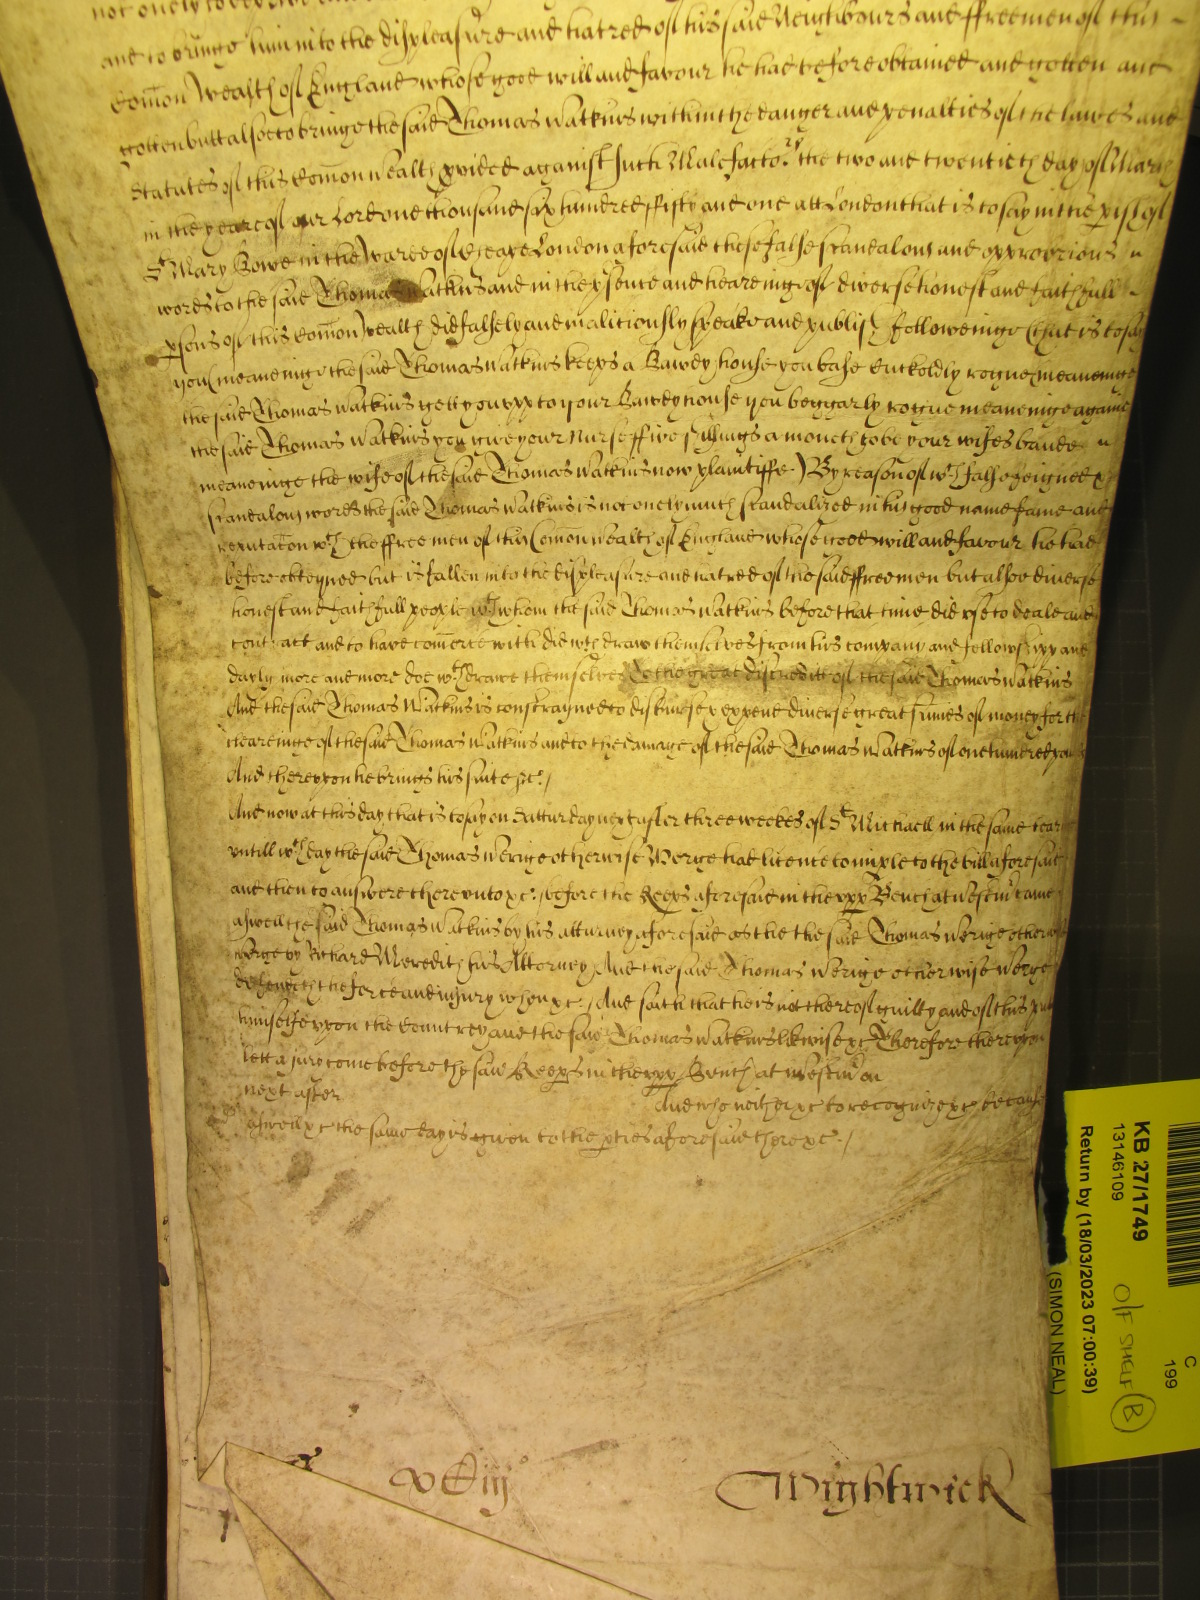 and to bringe him into the displeasure and hatred of his said Neighbours and ffreemen of this
Com̃on Wealth of England whose good will and favour he had before obtained and gotten and
gotten butt alsoe to bringe the said Thomas Watkins within the danger and penalties of the lawes and
Statutes of this Com̃on wealth p̱vided against such Malefactors the two and twentieth day of March
in the yeare of our Lord one thousand six hundred ffifty and one att London that is to say in the p̱ish of
St Mary Bowe in the Warde of Cheape London aforesaid these false scandalous and opprobrious
words to the said Thomas Watkins and in the p̱sence and heareing of diverse honest and faithfull
p̱sons of this Com̃on Wealth did falsely and malitiously speake and publish followeinge (that is to say)
you (meaneinge the said Thomas Watkins keeps a Bawdy house you base Cuckoldly rogue meaneinge
the said Thomas Watkins gett you vpp to your Bawdy house you beggarly rogue meaneinge againe
the said Thomas Watkins you give your Nurse ffive shillings a moneth to be your wifes baude
meaneinge the wife of the said Thomas Watkins now plaintiffe) By reason of wch false feigned &
scandalous words the said Thomas Watkins is not onely much scandalized in his good name fame and
reputac̃on wth the ffree men of this Com̃on wealth of England whose good will and favour he had
before obteyned but is fallen into the displeasure and hatred of the said ffreemen but alsoe diverse
honest and faithfull people wth whom the said Thomas Watkins before that time did vse to deale and
contract and to have com̃erce with did wth draw themselves from his company and fellowshipp and
dayly more and more doe wth drawe themselves to the great discreditt of the said Thomas Watkins
And the said Thomas Watkins is constrayned to disburse & expend diverse great sum̃es of money for the
cleareinge of the said Thomas Watkins and to the damage of the said Thomas Watkins of one hundred
And therevpon he brings his suite &c./
And now at this day that is to say on Satturday next after three weekes of St Michaell in the same tearme
vntill wch day the said Thomas Werige otherwise Werge had licence to imple to the bill aforesaid
and then to answere therevnto &c. before the Keeps̱ aforesaid in the vpp Bench at Westm̃ came
aswell the said Thomas Watkins by his atturney aforesaid as the the said Thomas Werige otherwise
Werge by Richard Meredith his Attorney, And the said Thomas Werige otherwise Werge
defendeth the force and injury when &c./ And saith that he is not thereof guilty and of this putts
himselfe vpon the Countrey and the said Thomas Watkins likewise &c Therefore therevpon
lett a jury come before the said Keeps̱ in the vpp Bench at Westm̃ on
next after And who neither &c to recognize &c because
aswell &c the same day is given to the p̱ties aforesaid there &c./
Wightwick
KB 27/1749
13146109
Return by (18/03/2023 07:00:39)
(SIMON NEAL)
O/F SHELF B
C
199